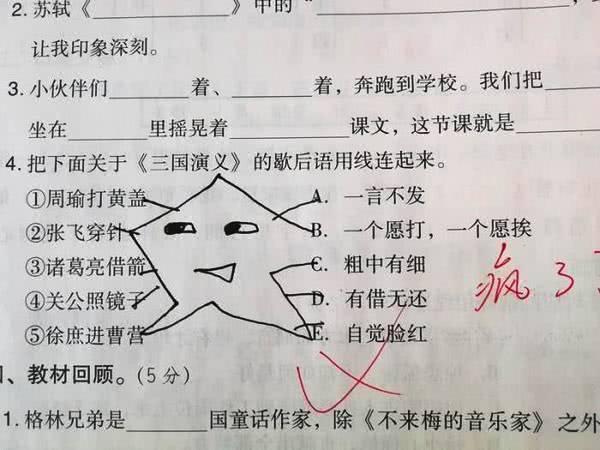 2. 苏轼《________》中的“________________，
让我印象深刻。
3. 小伙伴们______着、______着，奔跑到学校。我们把
坐在______里摇晃着________课文，这节课就是________
4. 把下面关于《三国演义》的歇后语用线连起来。
①周瑜打黄盖 A. 一言不发
②张飞穿针 B. 一个愿打，一个愿挨
③诸葛亮借箭 C. 粗中有细
④关公照镜子 D. 有借无还
⑤徐庶进曹营 E. 自觉脸红
疯了
、教材回顾。(5分)
1. 格林兄弟是______国童话作家，除《不来梅的音乐家》之外